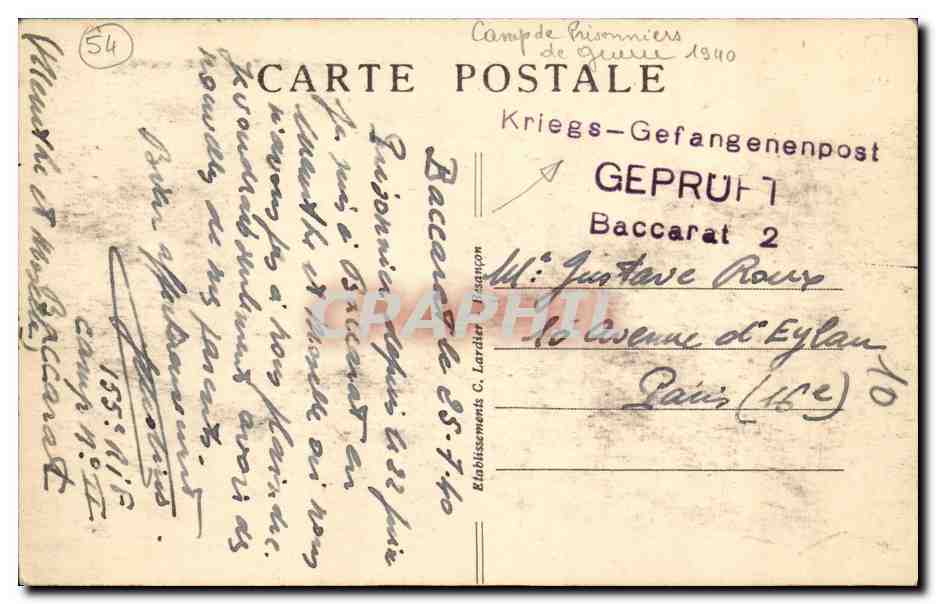 54
Camp de Prisonniers
de guerre 1940
CARTE POSTALE
Kriegs-Gefangenenpost
GEPRÜFT
Baccarat 2
Baccarat le 25-7-40
Prisonnier depuis le 22 juin
je suis à Baccarat en
Meurthe et Moselle où nous
n'avons pas à nous plaindre.
Je voudrais seulement avoir des
nouvelles de mes parents.
Bien affectueusement
155e R.I.F
Camp n° II
Baccarat
Meurthe et Moselle
Etablissements C. Lardier - Besançon
CPAPHIL
Mr Gustave Roux
10 avenue d'Eylau
Paris (16e)
10